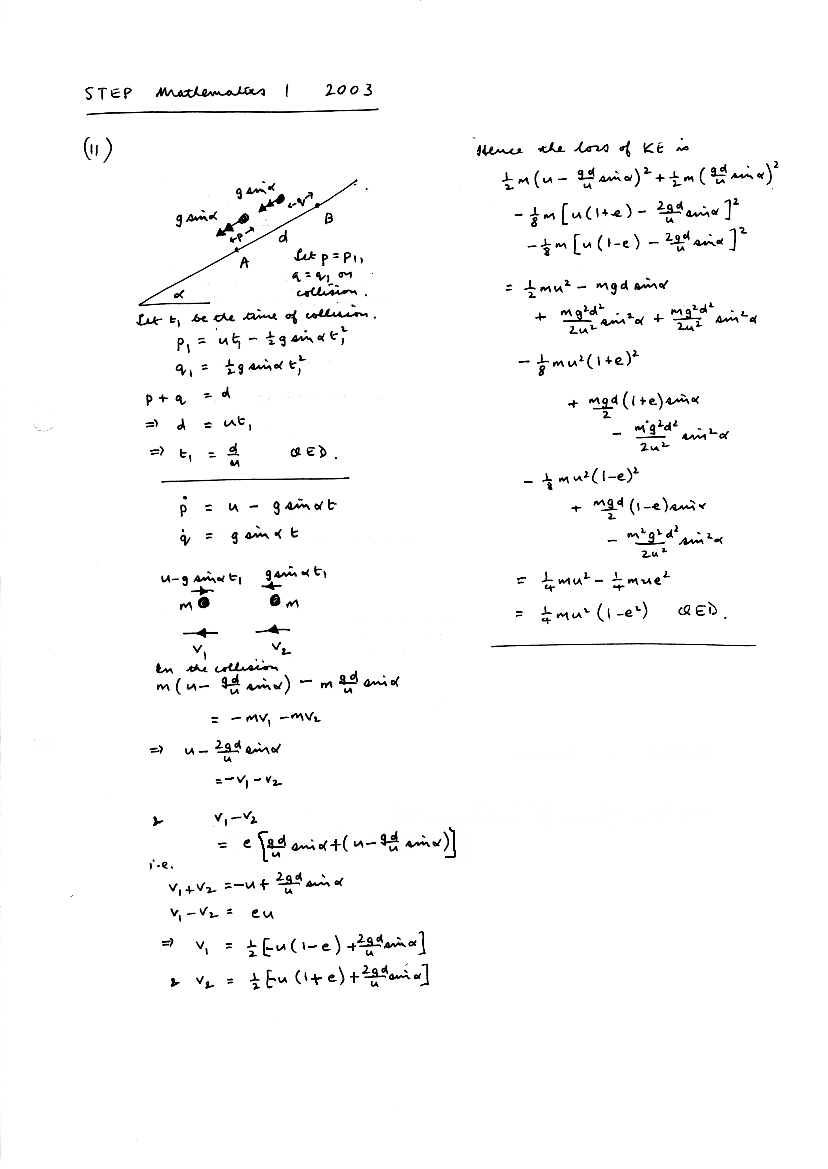 STEP Mathematics I 2003
(11)
g sin α
g sin α
←q→
←p→
B
d
A
α
Let p = p₁,
q = q₁ on
collision.
Let t₁ be the time of collision.
p₁ = ut₁ − ½g sin α t₁²
q₁ = ½g sin α t₁²
p + q = d
⇒ d = ut₁
⇒ t₁ = d/u QED.
ṗ = u − g sin α t
q̇ = g sin α t
u − g sin α t₁ g sin α t₁
m m
v₁ v₂
In the collision
m(u − gd/u sin α) − m gd/u sin α
= −mv₁ − mv₂
⇒ u − 2gd/u sin α
= −v₁ − v₂
& v₁ − v₂
= e[gd/u sin α + (u − gd/u sin α)]
i.e.
v₁ + v₂ = −u + 2gd/u sin α
v₁ − v₂ = eu
⇒ v₁ = ½[−u(1−e) + 2gd/u sin α]
& v₂ = ½[−u(1+e) + 2gd/u sin α]
Hence the loss of KE is
½m(u − gd/u sin α)² + ½m(gd/u sin α)²
− ⅛m[u(1+e) − 2gd/u sin α]²
− ⅛m[u(1−e) − 2gd/u sin α]²
= ½mu² − mgd sin α
+ mg²d²/2u² sin²α + mg²d²/2u² sin²α
− ⅛mu²(1+e)²
+ mgd/2 (1+e) sin α
− m²g²d²/2u² sin²α
− ⅛mu²(1−e)²
+ mgd/2 (1−e) sin α
− m²g²d²/2u² sin²α
= ¼mu² − ¼mue²
= ¼mu²(1−e²) QED.